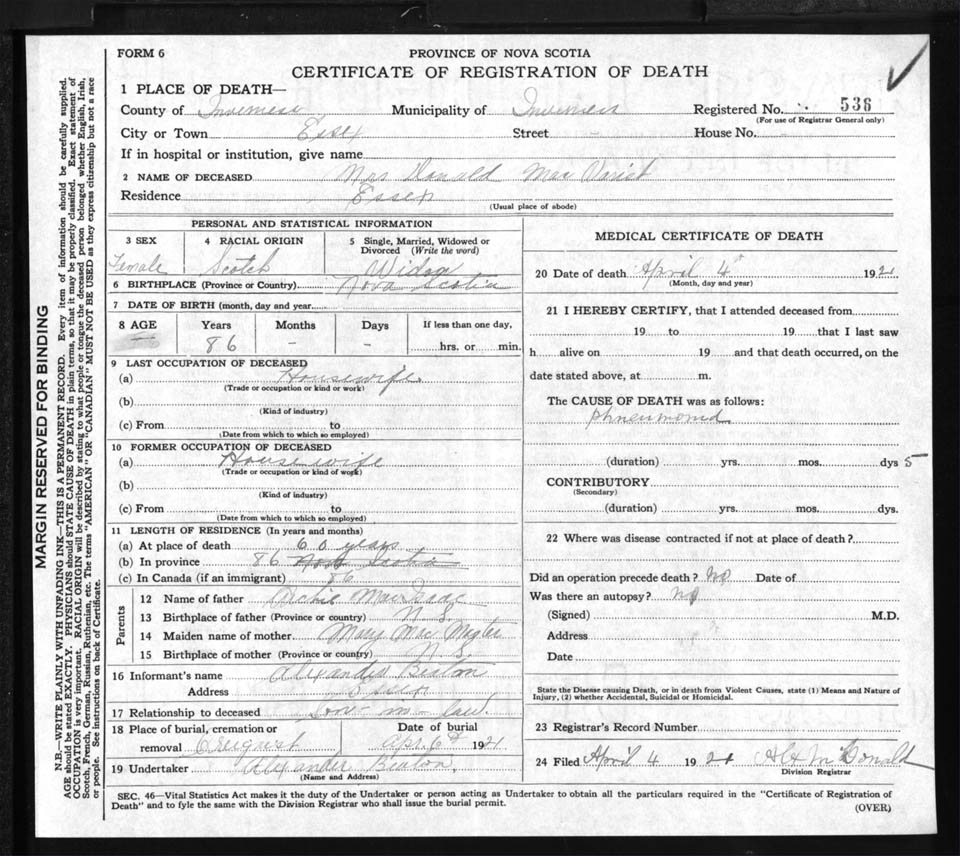 FORM 6
PROVINCE OF NOVA SCOTIA
CERTIFICATE OF REGISTRATION OF DEATH
1 PLACE OF DEATH—
County of Inverness Municipality of Inverness Registered No. 536
(For use of Registrar General only)
City or Town Essex Street - House No.
If in hospital or institution, give name
2 NAME OF DECEASED Mrs Donald Mac
Residence Essex
(Usual place of abode)
PERSONAL AND STATISTICAL INFORMATION
3 SEX
Female
4 RACIAL ORIGIN
Scotch
5 Single, Married, Widowed or
Divorced (Write the word)
Widow
6 BIRTHPLACE (Province or Country) Nova Scotia
7 DATE OF BIRTH (month, day and year)
8 AGE Years Months Days If less than one day,
86 - - hrs. or min.
9 LAST OCCUPATION OF DECEASED
(a) Housewife
(Trade or occupation or kind or work)
(b)
(Kind of industry)
(c) From to
(Date from which to which so employed)
10 FORMER OCCUPATION OF DECEASED
(a) Housewife
(Trade or occupation or kind of work)
(b)
(Kind of industry)
(c) From to
(Date from which to which so employed)
11 LENGTH OF RESIDENCE (In years and months)
(a) At place of death 60 years
(b) In province 86 Nova Scotia
(c) In Canada (if an immigrant) 86
Parents
12 Name of father Archie Mac Isaac
13 Birthplace of father (Province or country) N.S.
14 Maiden name of mother Mary Mac
15 Birthplace of mother (Province or country) N.S.
16 Informant's name Alexander Beaton
Address Essex
17 Relationship to deceased Son-in-law
18 Place of burial, cremation or
removal Creignish
Date of burial
Apr. 6th 1921
19 Undertaker Alexander Beaton.
(Name and Address)
MEDICAL CERTIFICATE OF DEATH
20 Date of death April 4th 1921
(Month, day and year)
21 I HEREBY CERTIFY, that I attended deceased from
19 to 19 that I last saw
h alive on 19 and that death occurred, on the
date stated above, at m.
The CAUSE OF DEATH was as follows:
Phneumonid
(duration) yrs. mos. dys 5
CONTRIBUTORY
(Secondary)
(duration) yrs. mos. dys.
22 Where was disease contracted if not at place of death?
Did an operation precede death? No Date of
Was there an autopsy? No
(Signed) M.D.
Address
Date
State the Disease causing Death, or in death from Violent Causes, state (1) Means and Nature of
Injury, (2) whether Accidental, Suicidal or Homicidal.
23 Registrar's Record Number
24 Filed April 4 1921 Alex McDonald
Division Registrar
SEC. 46—Vital Statistics Act makes it the duty of the Undertaker or person acting as Undertaker to obtain all the particulars required in the "Certificate of Registration of
Death" and to fyle the same with the Division Registrar who shall issue the burial permit.
(OVER)
MARGIN RESERVED FOR BINDING
N.B.—WRITE PLAINLY WITH UNFADING INK—THIS IS A PERMANENT RECORD. Every item of information should be carefully supplied.
AGE should be stated EXACTLY. PHYSICIANS should STATE CAUSE OF DEATH in plain terms, so that it may be properly classified. Exact statement of
OCCUPATION is very important. RACIAL ORIGIN will be described by stating to what people or tongue the deceased person belonged whether English, Irish,
Scotch, French, German, Russian, Ruthenian, etc. The terms "AMERICAN" OR "CANADIAN" MUST NOT BE USED as they express citizenship but not a race
or people. See instructions on back of Certificate.